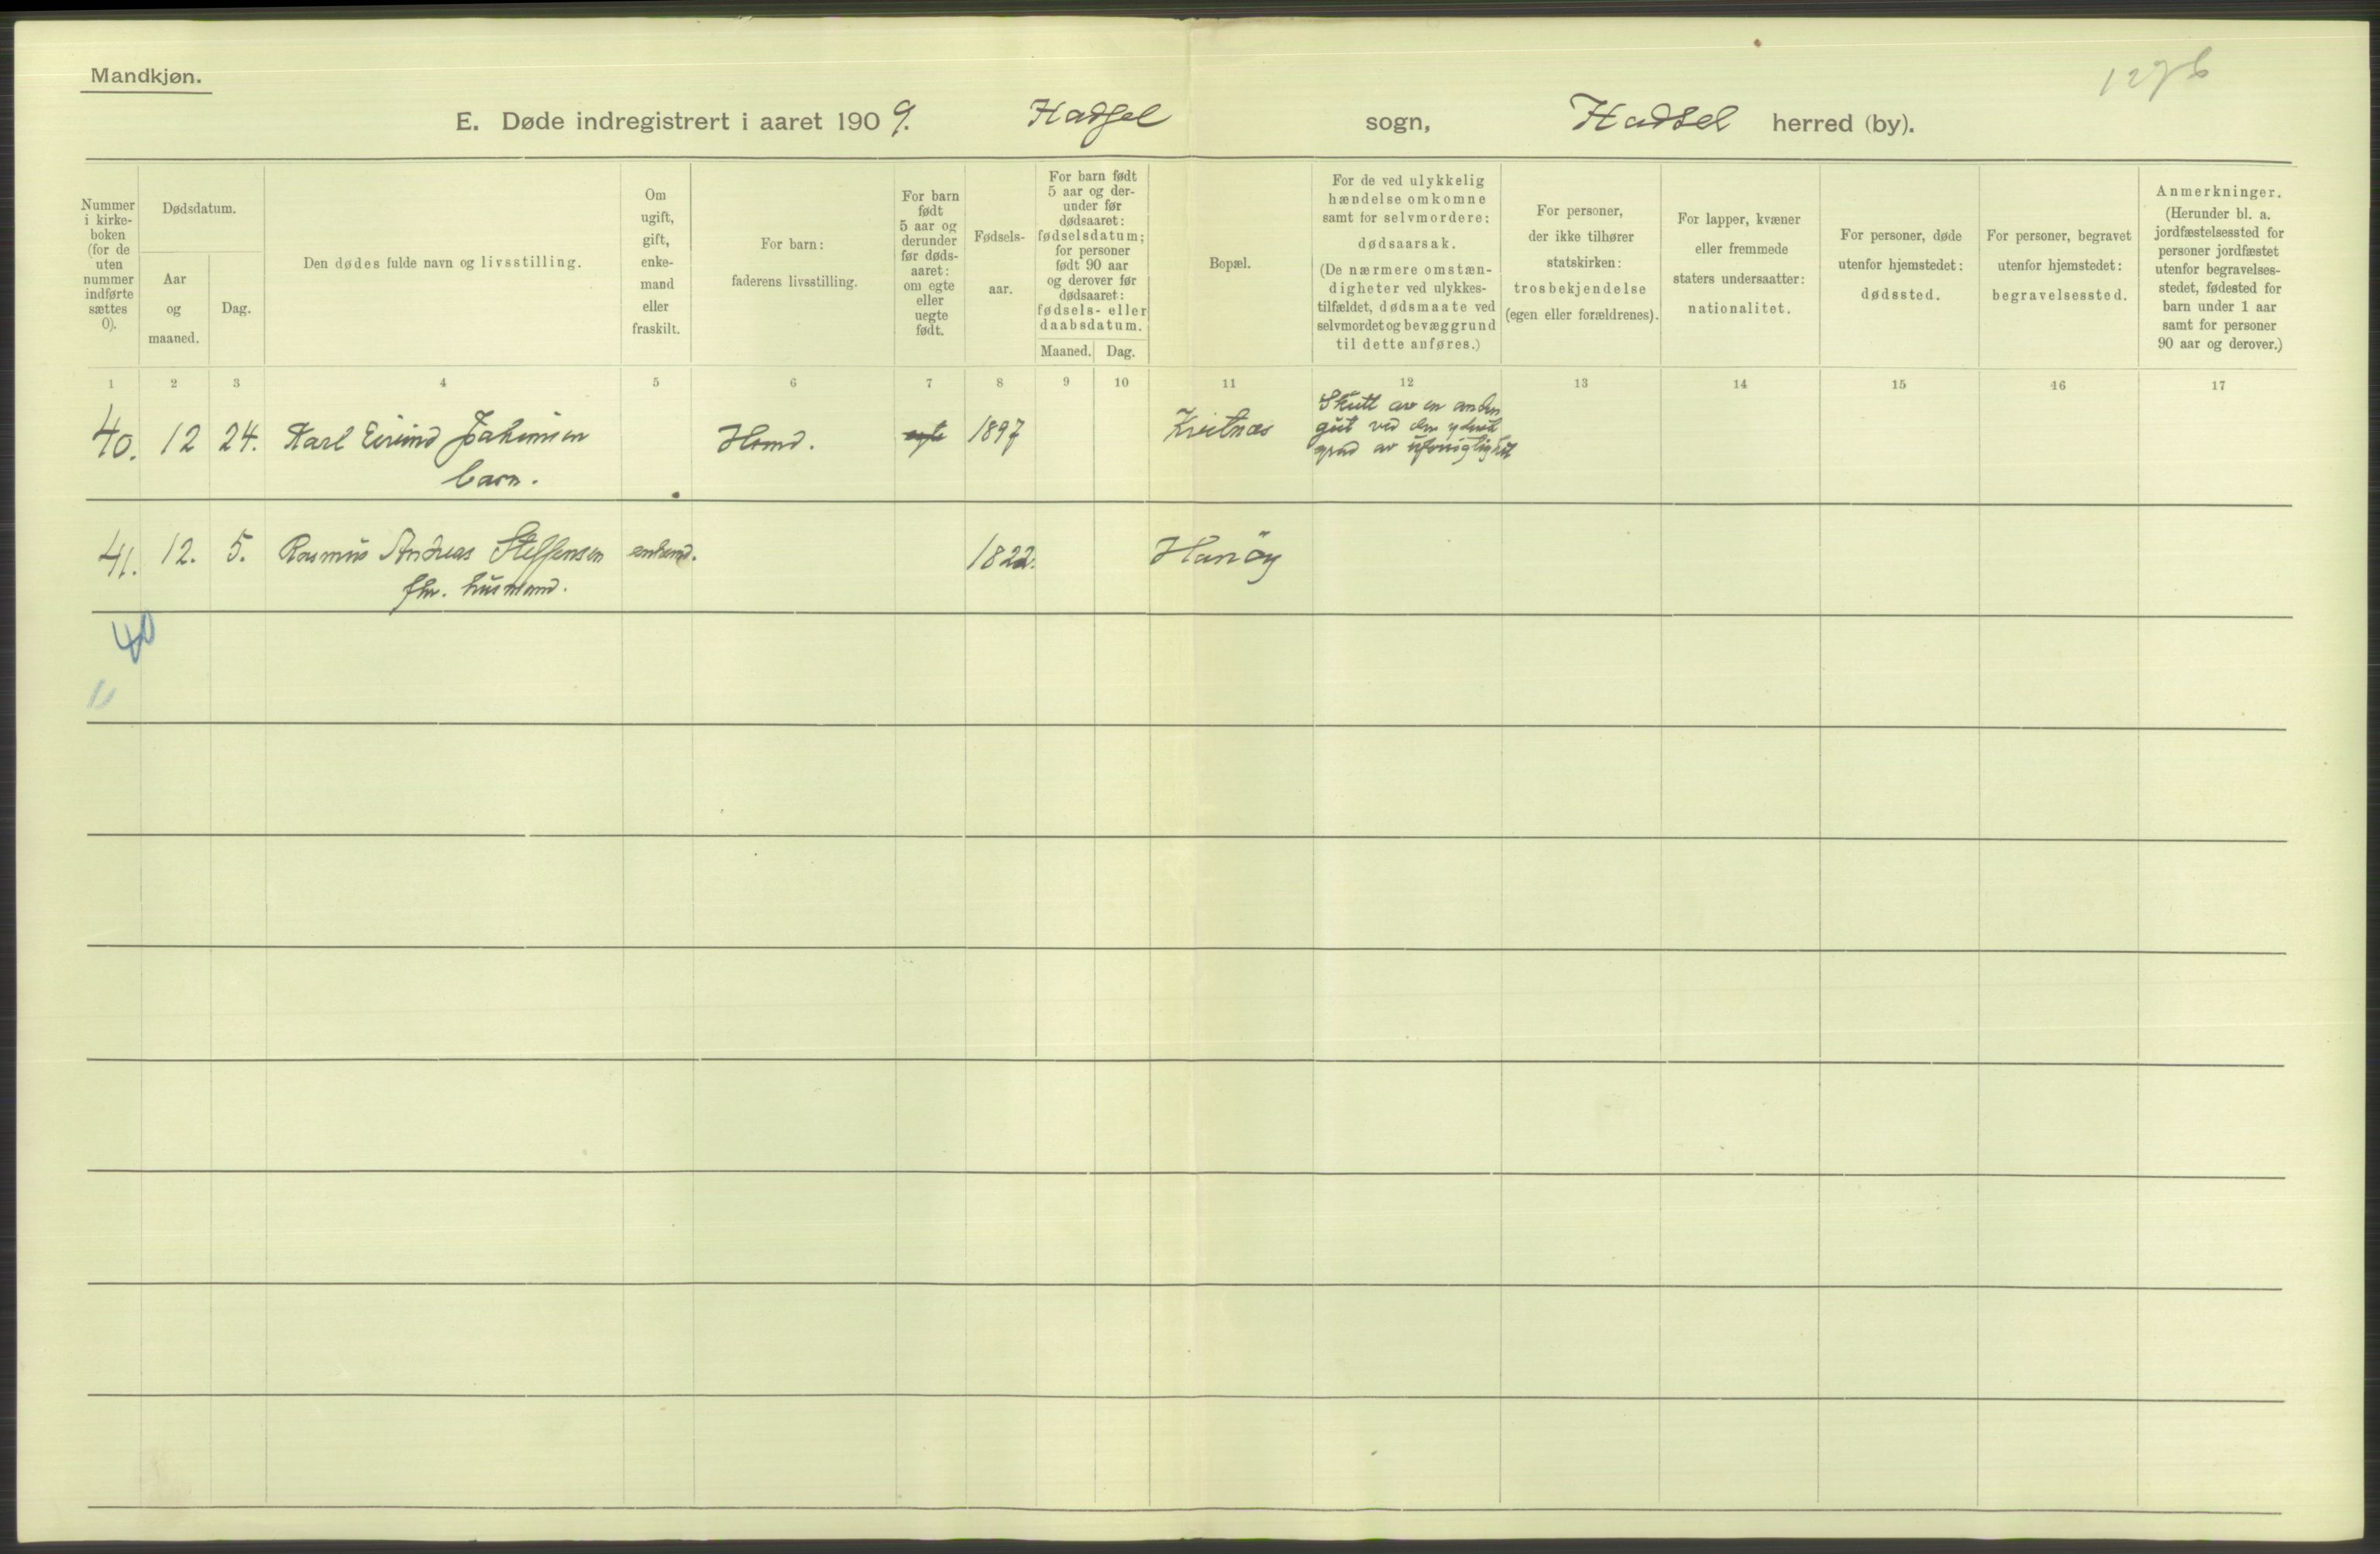 Mandkjøn.
1276
E. Døde indregistrert i aaret 1909. Hadsel sogn, Hadsel herred (by).
Nummer
i kirke-
boken
(for de
uten
nummer
indførte
sættes
0).
Dødsdatum.
Aar
og
maaned.
Dag.
Den dødes fulde navn og livsstilling.
Om
ugift,
gift,
enke-
mand
eller
fraskilt.
For barn:
faderens livsstilling.
For barn
født
5 aar og
derunder
før døds-
aaret:
om egte
eller
uegte
født.
Fødsels-
aar.
For barn født
5 aar og der-
under før
dødsaaret:
fødselsdatum;
for personer
født 90 aar
og derover før
dødsaaret:
fødsels- eller
daabsdatum.
Maaned. Dag.
Bopæl.
For de ved ulykkelig
hændelse omkomne
samt for selvmordere:
dødsaarsak.
(De nærmere omstæn-
digheter ved ulykkes-
tilfældet, dødsmaate ved
selvmordet og bevæggrund
til dette anføres.)
For personer,
der ikke tilhører
statskirken:
trosbekjendelse
(egen eller forældrenes).
For lapper, kvæner
eller fremmede
staters undersaatter:
nationalitet.
For personer, døde
utenfor hjemstedet:
dødssted.
For personer, begravet
utenfor hjemstedet:
begravelsessted.
Anmerkninger.
(Herunder bl. a.
jordfæstelsessted for
personer jordfæstet
utenfor begravelses-
stedet, fødested for
barn under 1 aar
samt for personer
90 aar og derover.)
1 2 3 4 5 6 7 8 9 10 11 12 13 14 15 16 17
40. 12 24. Karl Eivind Joakimsen egte 1897 Kvitnæs Skutt av en anden
gut ved den yderste
grad av uforsigtighet
barn.
41. 12. 5. Rasmus Andreas Steffensen enkemd. 1822. Hanöy
fhv. husmand.
40